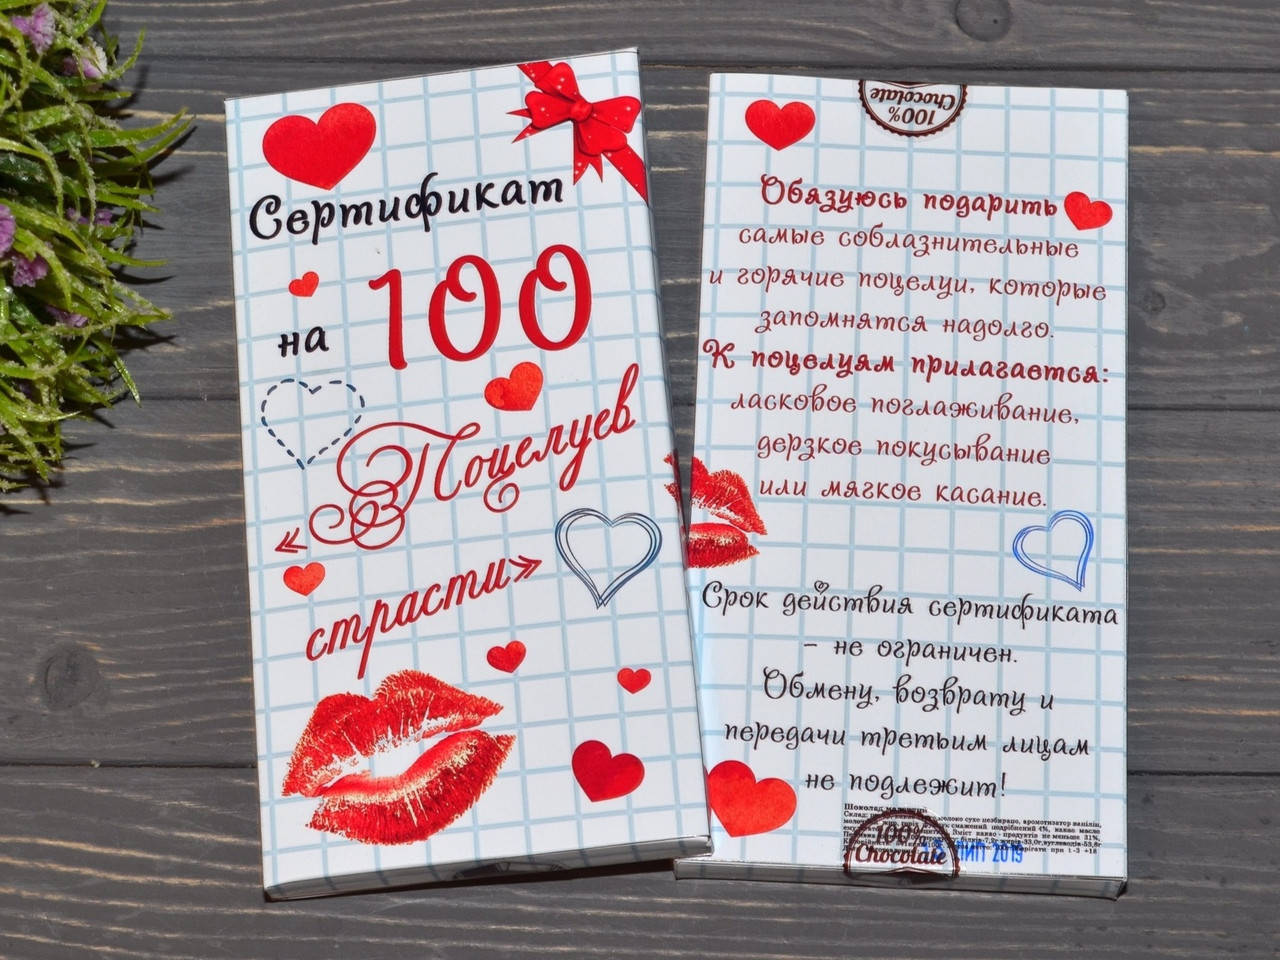 Сертификат
на 100
«Поцелуев
страсти»
100%
Chocolate
Обязуюсь подарить
самые соблазнительные
и горячие поцелуи, которые
запомнятся надолго.
К поцелуям прилагается:
ласковое поглаживание,
дерзкое покусывание
или мягкое касание.
Срок действия сертификата
- не ограничен.
Обмену, возврату и
передачи третьим лицам
не подлежит!
Шоколад молочний
Склад:
молоко сухе незбиране, ароматизатор ванілін,
смажений подрібнений 4%, какао масло
Зміт какао - продуктів не меньше 31%,
білків-7,9г, жирів-33,0г, вуглеводів-53,8г
зберігати при t -3 +18
100%
Chocolate
ЛИП 2019